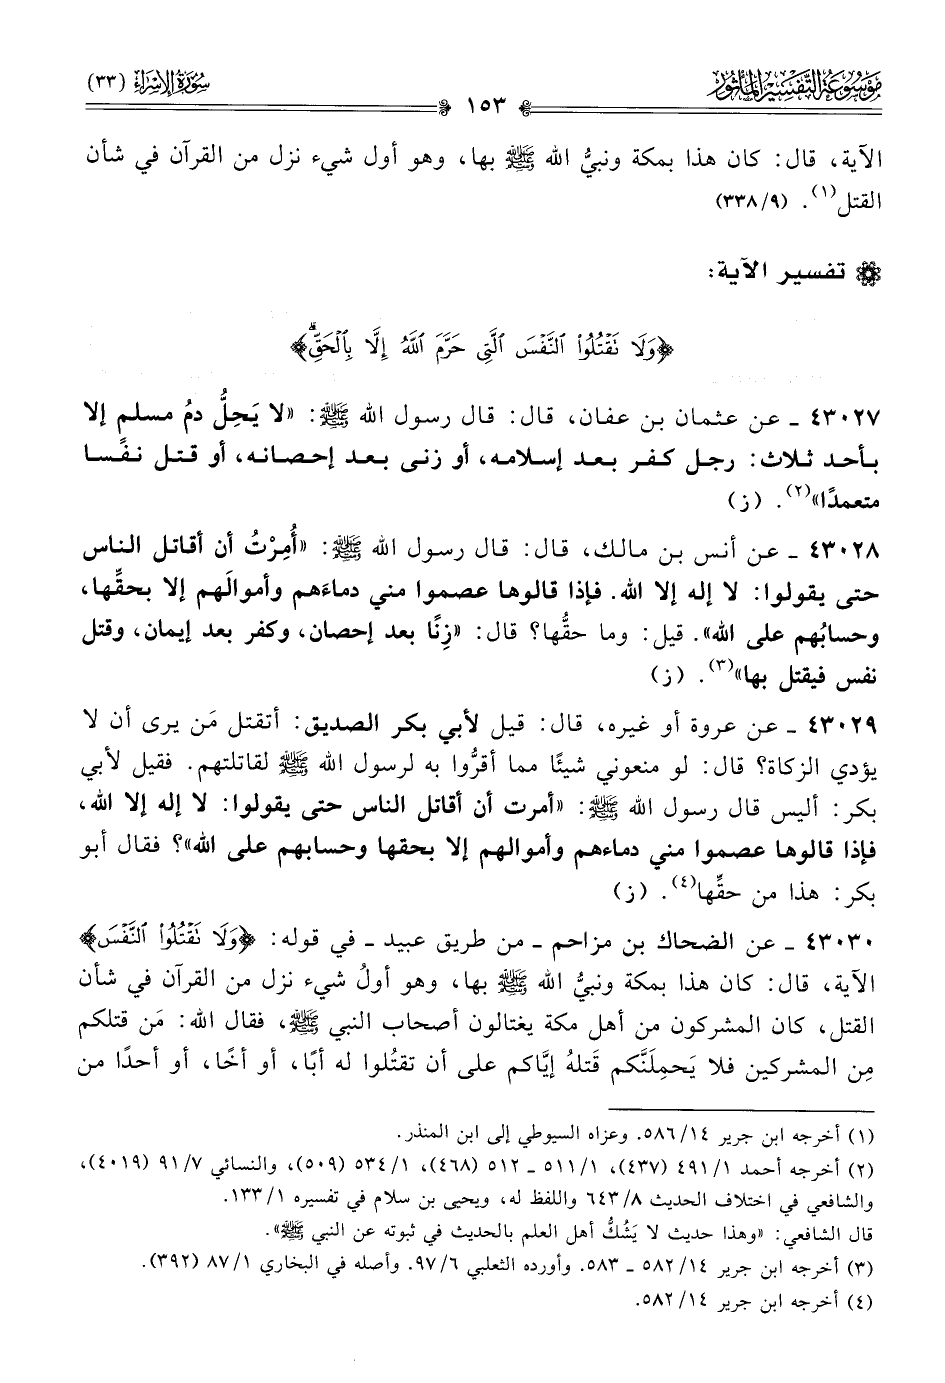 موسوعة التفسير المأثور
١٥٣
سورة الإسراء (٣٣)
الآية، قال: كان هذا بمكة ونبيُّ الله ﷺ بها، وهو أول شيء نزل من القرآن في شأن
القتل(١). (٣٣٨/٩)
تفسير الآية:
﴿وَلَا تَقْتُلُوا۟ ٱلنَّفْسَ ٱلَّتِى حَرَّمَ ٱللَّهُ إِلَّا بِٱلْحَقِّۗ﴾
٤٣٠٢٧ ـ عن عثمان بن عفان، قال: قال رسول الله ﷺ: «لا يَحِلُّ دمُ مسلم إلا
بأحد ثلاث: رجل كفر بعد إسلامه، أو زنى بعد إحصانه، أو قتل نفسًا
متعمدًا»(٢). (ز)
٤٣٠٢٨ ـ عن أنس بن مالك، قال: قال رسول الله ﷺ: «أُمِرْتُ أن أقاتل الناس
حتى يقولوا: لا إله إلا الله. فإذا قالوها عصموا مني دماءَهم وأموالَهم إلا بحقِّها،
وحسابُهم على الله». قيل: وما حقُّها؟ قال: «زِنًا بعد إحصان، وكفر بعد إيمان، وقتل
نفس فيقتل بها»(٣). (ز)
٤٣٠٢٩ ـ عن عروة أو غيره، قال: قيل لأبي بكر الصديق: أتقتل مَن يرى أن لا
يؤدي الزكاة؟ قال: لو منعوني شيئًا مما أقرُّوا به لرسول الله ﷺ لقاتلتهم. فقيل لأبي
بكر: أليس قال رسول الله ﷺ: «أمرت أن أقاتل الناس حتى يقولوا: لا إله إلا الله،
فإذا قالوها عصموا مني دماءهم وأموالهم إلا بحقها وحسابهم على الله»؟ فقال أبو
بكر: هذا من حقِّها(٤). (ز)
٤٣٠٣٠ ـ عن الضحاك بن مزاحم ـ من طريق عبيد ـ في قوله: ﴿وَلَا تَقْتُلُوا۟ ٱلنَّفْسَ﴾
الآية، قال: كان هذا بمكة ونبيُّ الله ﷺ بها، وهو أولُ شيء نزل من القرآن في شأن
القتل، كان المشركون من أهل مكة يغتالون أصحاب النبي ﷺ، فقال الله: مَن قتلكم
مِن المشركين فلا يَحمِلَنَّكم قَتلهُ إيَّاكم على أن تقتُلوا له أبًا، أو أخًا، أو أحدًا من
(١) أخرجه ابن جرير ٥٨٦/١٤. وعزاه السيوطي إلى ابن المنذر.
(٢) أخرجه أحمد ٤٩١/١ (٤٣٧)، ٥١١/١ ـ ٥١٢ (٤٦٨)، ٥٣٤/١ (٥٠٩)، والنسائي ٩١/٧ (٤٠١٩)،
والشافعي في اختلاف الحديث ٦٤٣/٨ واللفظ له، ويحيى بن سلام في تفسيره ١٣٣/١.
قال الشافعي: «وهذا حديث لا يَشُكُّ أهل العلم بالحديث في ثبوته عن النبي ﷺ».
(٣) أخرجه ابن جرير ٥٨٢/١٤ ـ ٥٨٣. وأورده الثعلبي ٩٧/٦. وأصله في البخاري ٨٧/١ (٣٩٢).
(٤) أخرجه ابن جرير ٥٨٢/١٤.